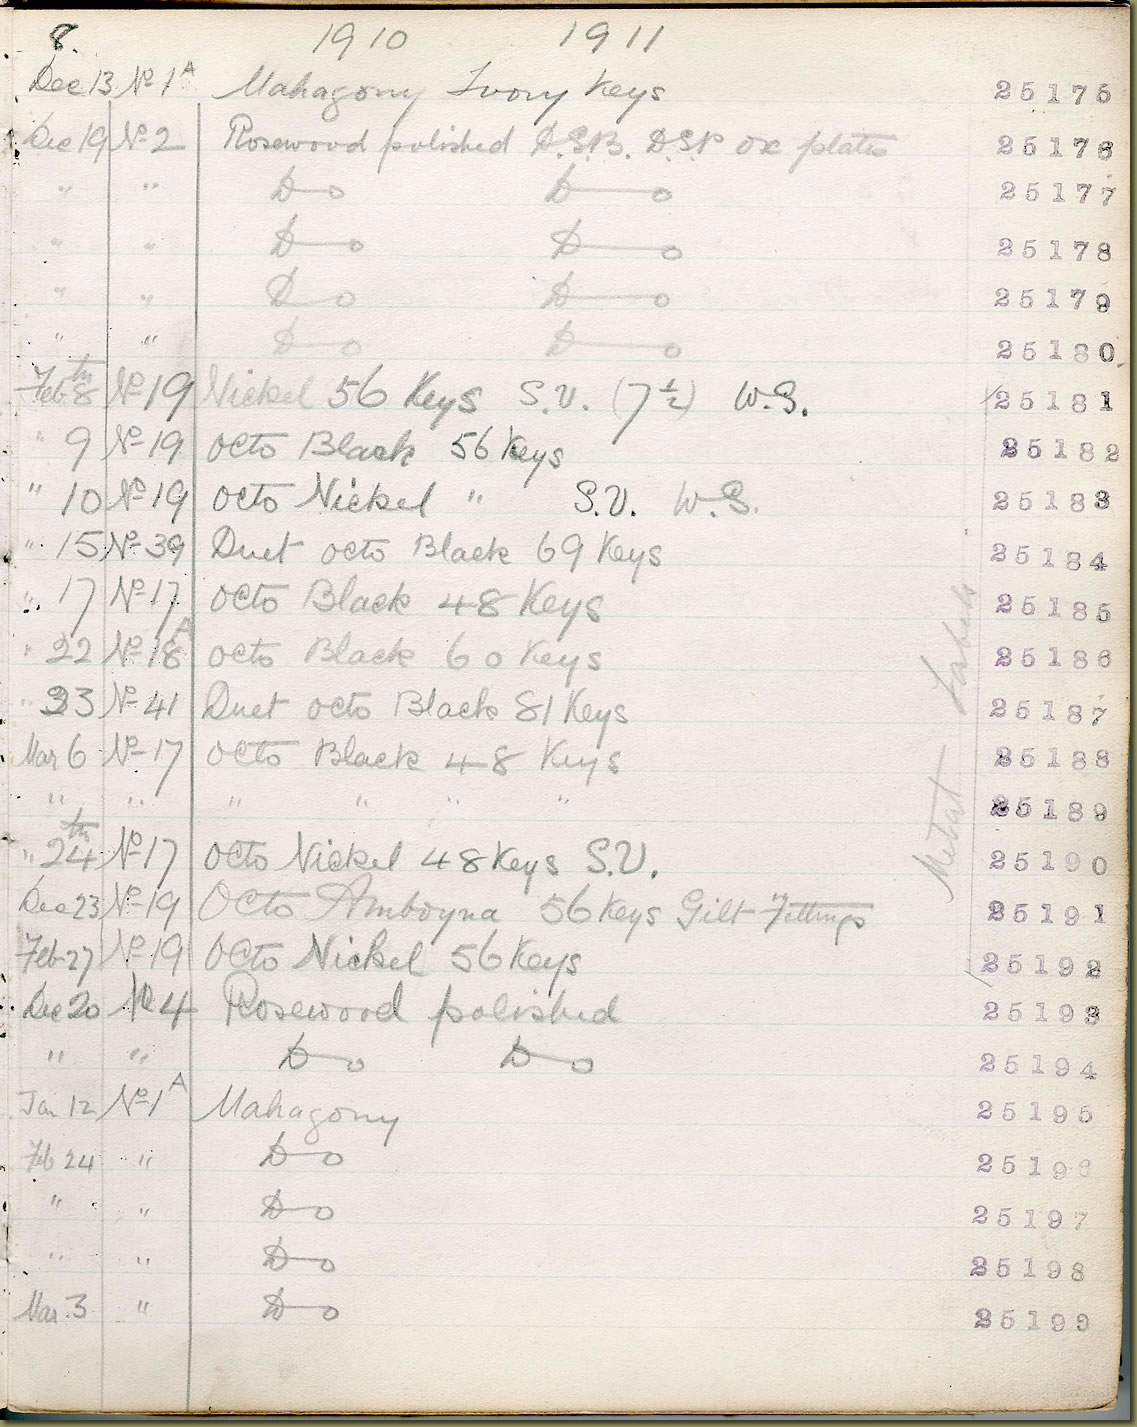 8. 1910 1911
Dec 13 No 1A Mahagony Ivory Keys 25175
Dec 19 No 2 Rosewood polished D.S.B. D.S.P ox plates 25176
" " Do Do 25177
" " Do Do 25178
" " Do Do 25179
" " Do Do 25180
Feb 8th No 19 Nickel 56 Keys S.V. (7½) W.G. 25181
" 9 No 19 Octo Black 56 Keys 25182
" 10 No 19 Octo Nickel " S.V. W.G. 25183
" 15 No 39 Duet octo Black 69 Keys 25184
" 17 No 17 Octo Black 48 Keys 25185
" 22 No 18A octo Black 60 Keys 25186
" 23 No 41 Duet octo Black 81 Keys 25187
Mar 6 No 17 octo Black 48 Keys 25188
" " " " " " 25189
" 24th No 17 Octo Nickel 48 Keys S.V. 25190
Dec 23 No 19 Octo Amboyna 56 Keys Gilt Fittings 25191
Feb 27 No 19 Octo Nickel 56 Keys 25192
Dec 20 No 4 Rosewood polished 25193
" " Do Do 25194
Jan 12 No 1A Mahagony 25195
Feb 24 " Do 25196
" " Do 25197
" " Do 25198
Mar. 3 " Do 25199
Metal Labels